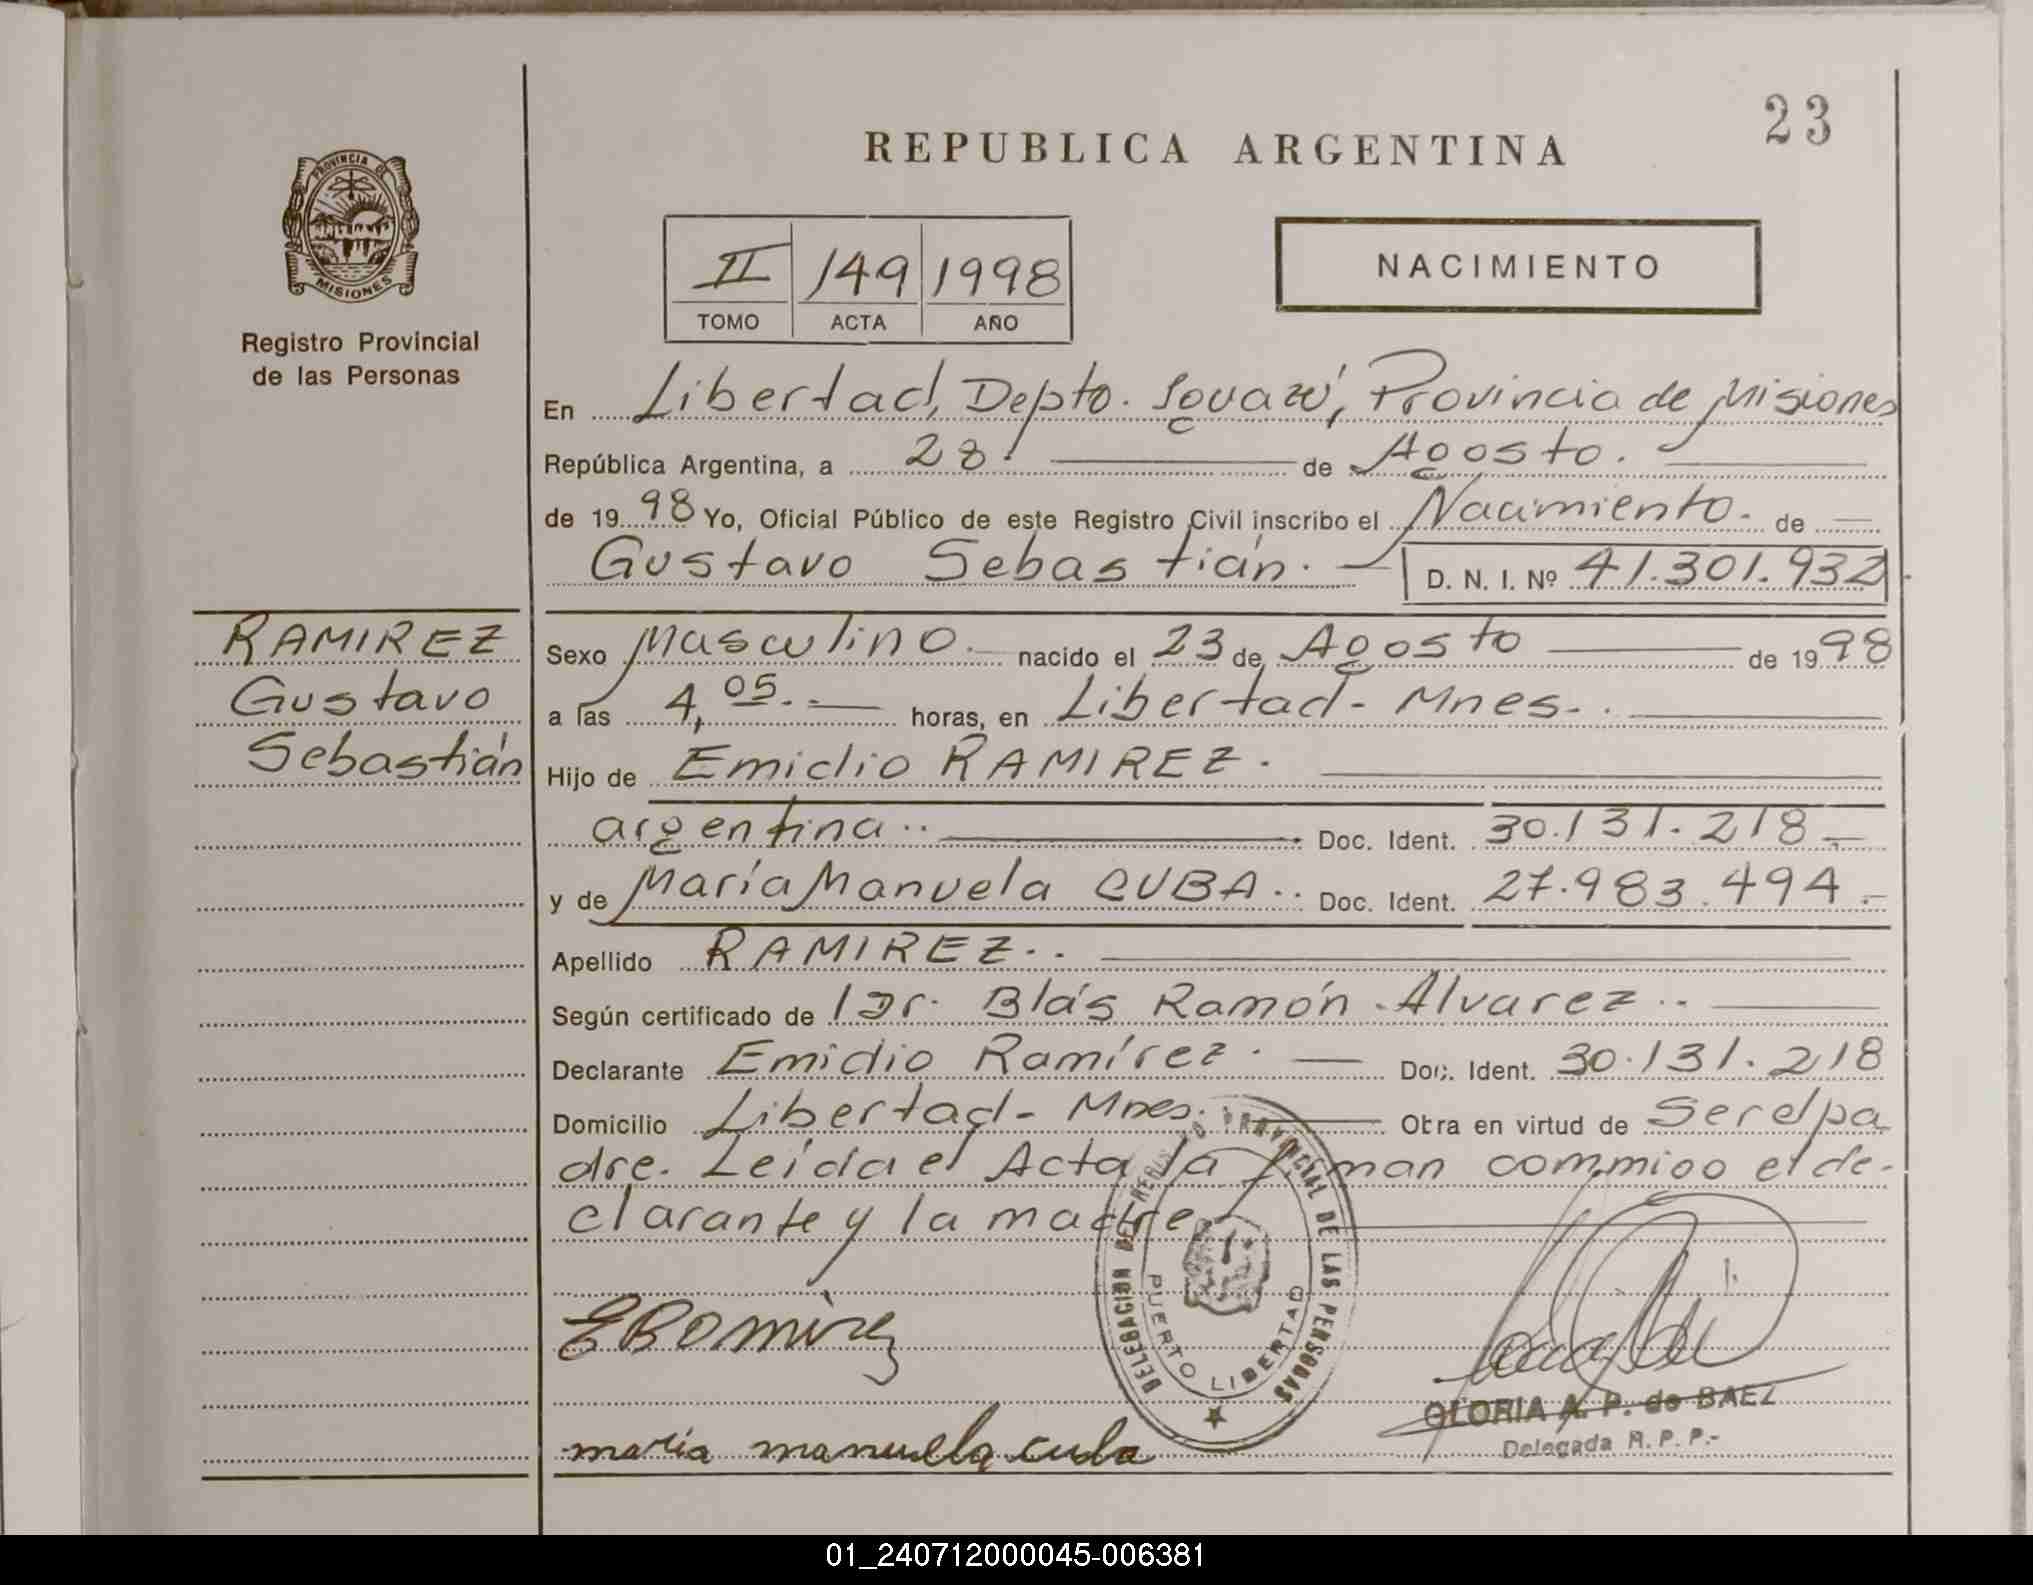 23
REPUBLICA ARGENTINA
PROVINCIA DE
MISIONES
Registro Provincial
de las Personas
II 149 1998
TOMO ACTA AÑO
NACIMIENTO
En Libertad, Depto. Iguazú, Provincia de Misiones
República Argentina, a 28. de Agosto.
de 1998 Yo, Oficial Público de este Registro Civil inscribo el Nacimiento. de
Gustavo Sebastián. D. N. I. Nº 41.301.932
RAMIREZ
Gustavo
Sebastián
Sexo Masculino. nacido el 23 de Agosto de 1998
a las 4,05.- horas, en Libertad- Mnes-.
Hijo de Emidio RAMIREZ.
argentina.. Doc. Ident. 30.131.218.-
y de María Manuela CUBA.. Doc. Ident. 27.983.494.-
Apellido RAMIREZ..
Según certificado de Dr. Blás Ramón Alvarez..
Declarante Emidio Ramírez. Doc. Ident. 30.131.218
Domicilio Libertad- Mnes. Obra en virtud de Ser el pa
dre. Leída el Acta la firman conmigo el de-
clarante y la madre.
DELEGACION DEL REGISTRO PROVINCIAL DE LAS PERSONAS
PUERTO LIBERTAD
E Ramirez
maria manuela cuba
GLORIA A. P. de BAEZ
Delegada R. P. P.-
01_240712000045-006381